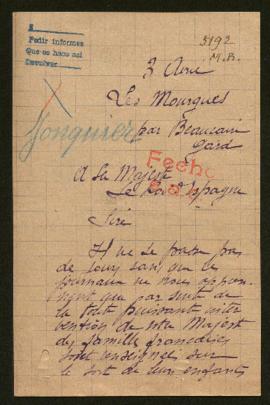 Pedir informes
Que se hace así
Devolver
5192
M.B.
3 Avril
Les Mourgues
par Beaucaire
Gard
Jonquier
Fecho
A Sa Majesté
Le Roi d'Espagne
Sire
Il ne se passe pas
de jours sans que le
journaux ne nous appren
nent que par suite de
la toute puissant inter
vention de votre Majesté
des famille francaises
sont renseignées sur
le sort de leurs enfants